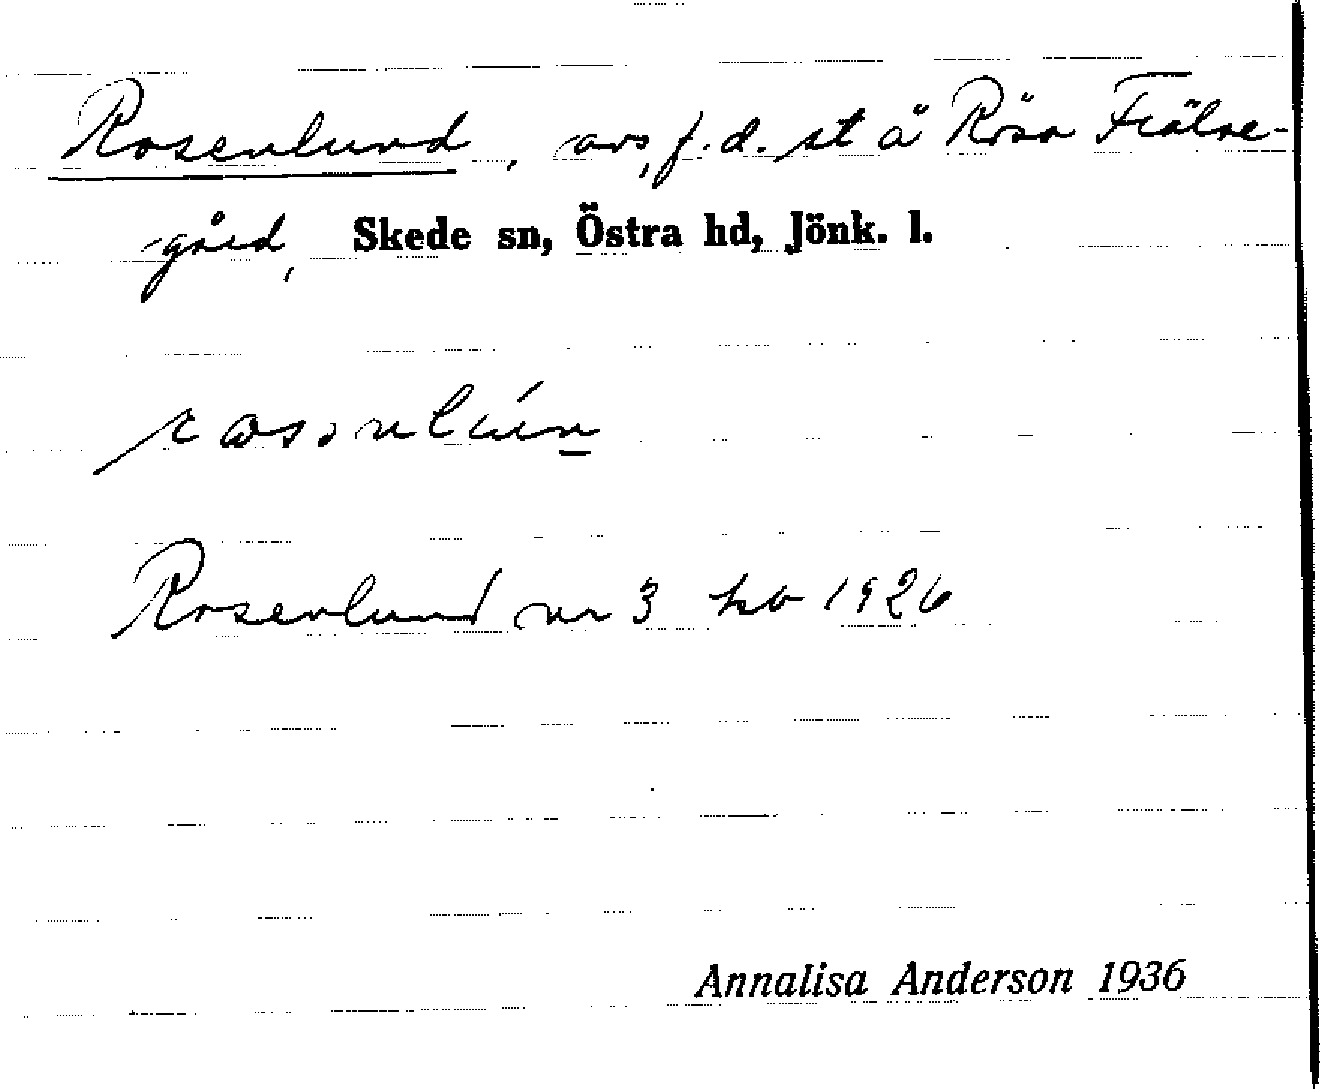 Rosenlund, avs, f.d. st å Rösa Frälse-
-gård, Skede sn, Östra hd, Jönk. l.
Rosenlund nr 3 kb 1926
Annalisa Anderson 1936